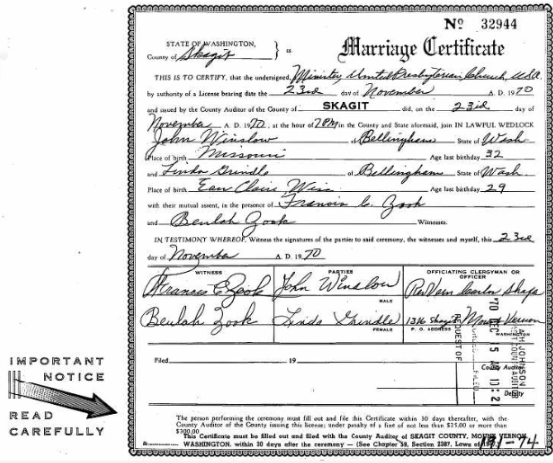 No 32944
STATE OF WASHINGTON,
County of Skagit } ss
Marriage Certificate
THIS IS TO CERTIFY, that the undersigned, Minister United Presbyterian Church, USA
by authority of a License bearing date the 23rd day of November A. D. 1970
and issued by the County Auditor of the County of SKAGIT did, on the 23rd day of
November A. D. 1970, at the hour of 7 PM in the County and State aforesaid, join IN LAWFUL WEDLOCK
John Winslow of Bellingham State of Wash
Place of birth Missouri Age last birthday 32
and Linda Grindle of Bellingham State of Wash
Place of birth Eau Claire Wisc Age last birthday 29
with their mutual assent, in the presence of Francis C. Zook
and Beulah Zook Witnesses.
IN TESTIMONY WHEREOF, Witness the signatures of the parties to said ceremony, the witnesses and myself, this 23rd
day of November A. D. 1970
WITNESS PARTIES OFFICIATING CLERGYMAN OR OFFICER
Francis C Zook John Winslow Rev Vern
MALE
Beulah Zook Linda Grindle 1316 Skagit Mount Vernon
FEMALE P. O. ADDRESS WASHINGTON
Filed 19
County Auditor
Deputy
'70 DEC 15 AM 10:2
REQUEST OF
JOHNSON
COUNTY AUDITOR
IMPORTANT
NOTICE
READ
CAREFULLY
The person performing the ceremony must fill out and file this Certificate within 30 days thereafter, with the
County Auditor of the County issuing this license; under penalty of a fine of not less than $25.00 or more than
$300.00.
This Certificate must be filled out and filed with the County Auditor of SKAGIT COUNTY, MOUNT VERNON,
WASHINGTON, within 30 days after the ceremony — (See Chapter 59, Section 2387, Laws of
191-74